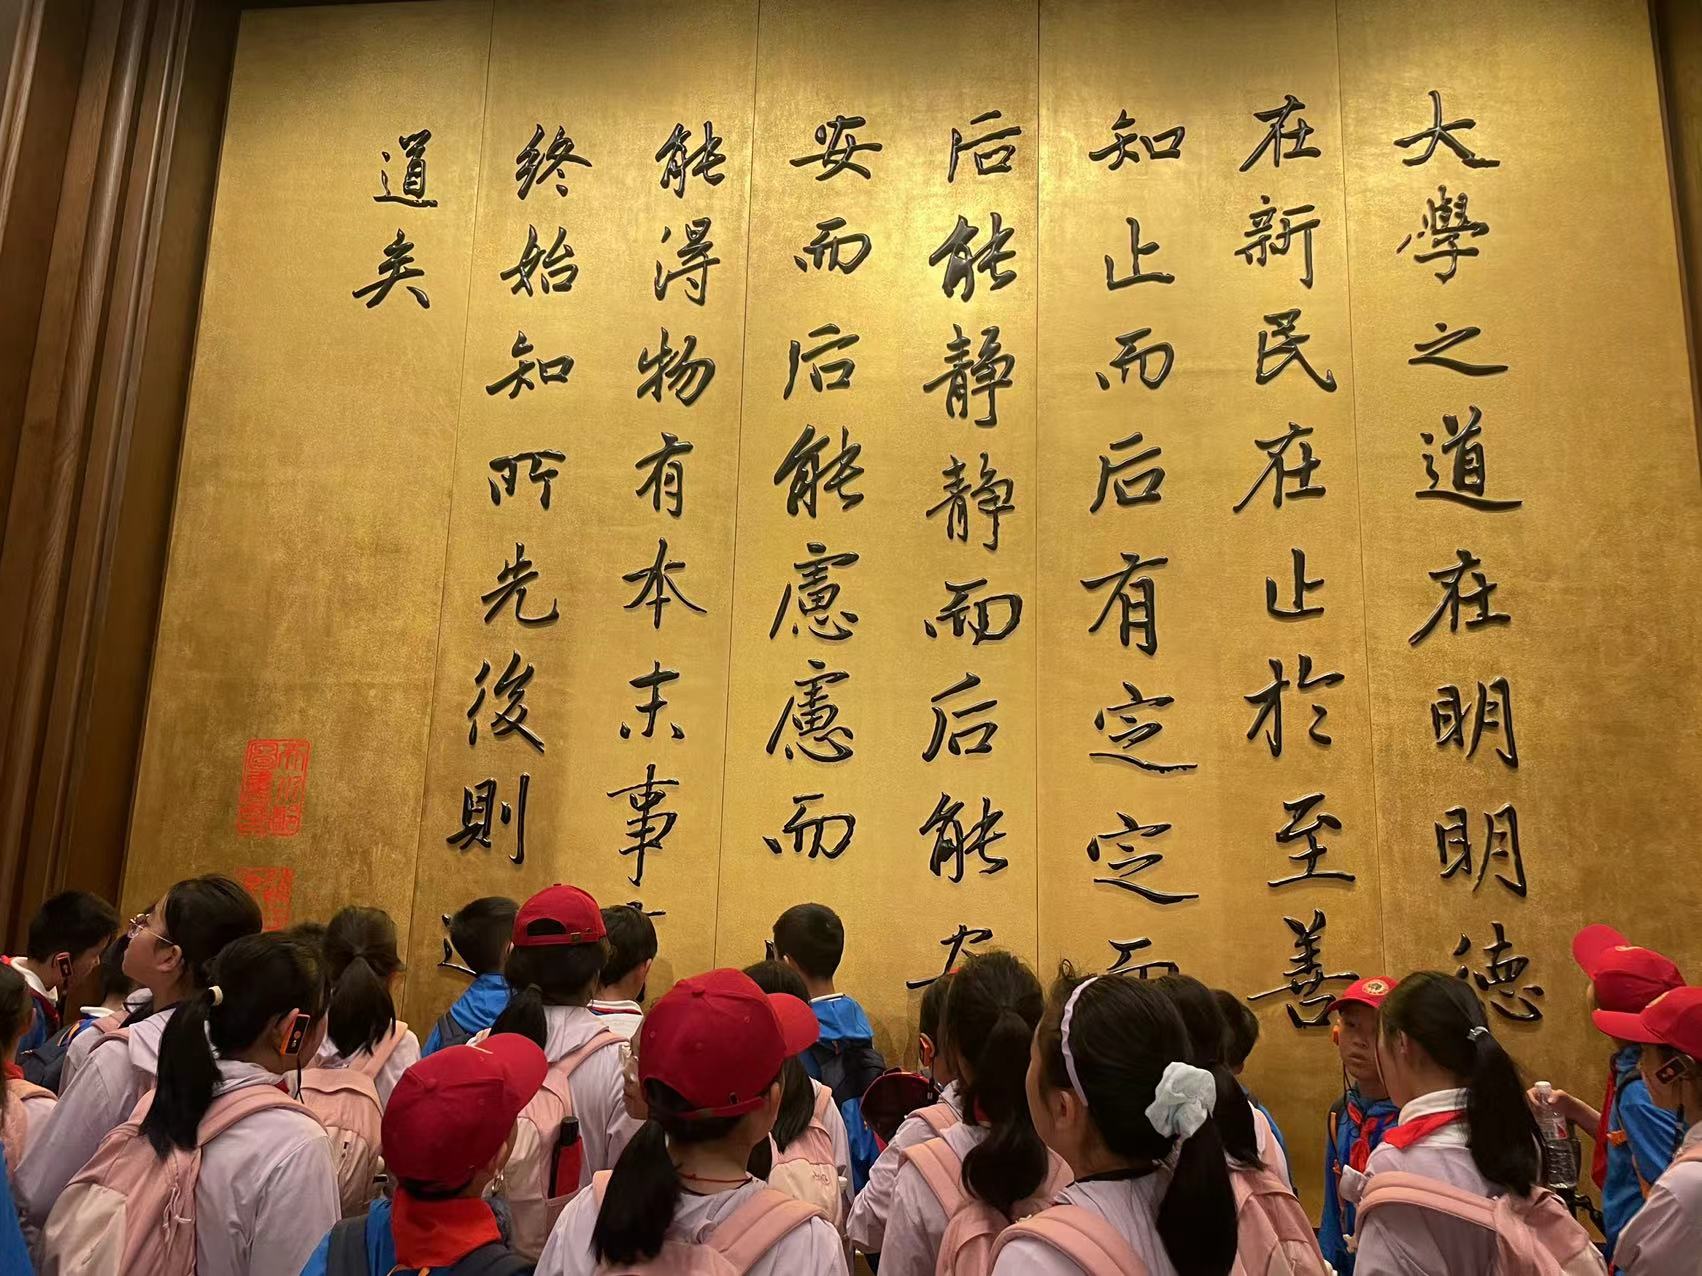 大學之道在明明德
在新民在止於至善
知止而后有定定而
后能静静而后能安
安而后能慮慮而
能得物有本末事
終始知所先後則
道矣